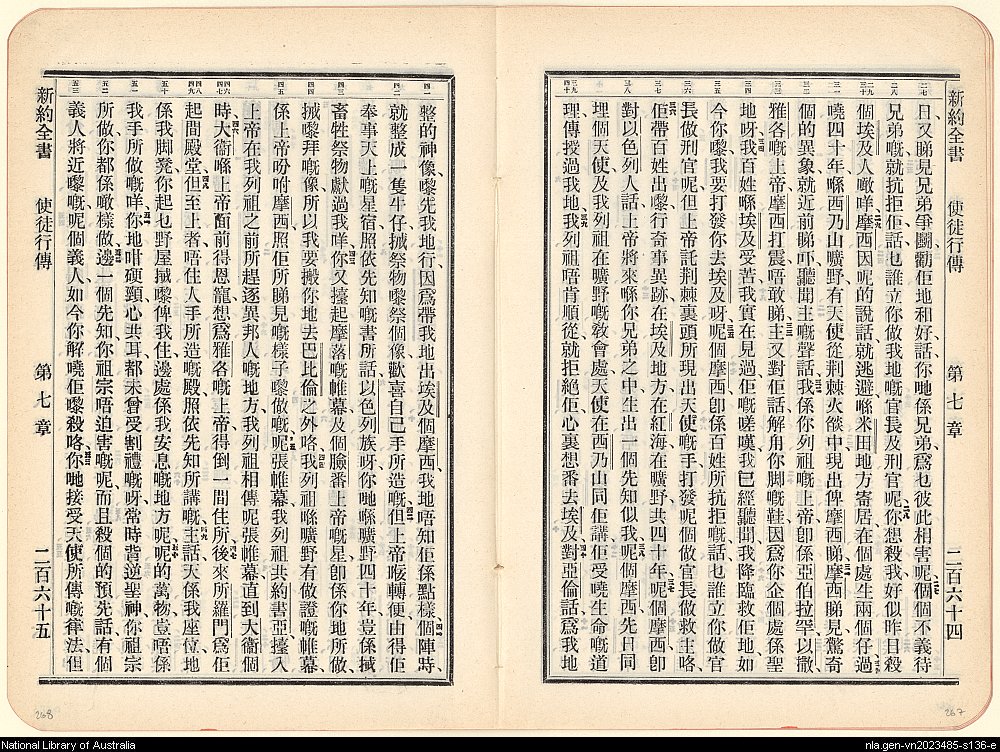 新約全書 使徒行傳 第七章 二百六十四
日又睇見兄弟爭鬭勸佢地和好話你哋係兄弟爲乜彼此相害呢個個不義待
兄弟嘅就抗拒佢話乜誰立你做我地嘅官長及刑官呢你想殺我好似昨日殺
個埃及人噉咩摩西因呢的說話就逃避喺米田地方寄居在個處生兩個仔過
嘵四十年喺西乃山嘅曠野有天使從荆棘火燄中現出俾摩西睇摩西睇見驚奇
個的異象就近前睇吓聽聞主嘅聲話我係你列祖嘅上帝卽係亞伯拉罕以撒
雅各嘅上帝摩西打震唔敢睇主又對佢話解甪你脚嘅鞋因爲你企個處係聖
地呀我百姓喺埃及受苦我實在見過佢嘅嗟嘆我已經聽聞我降臨救佢地如
今你嚟我要打發你去埃及呀呢個摩西卽係百姓所抗拒嘅話乜誰立你做官
長做刑官呢但上帝託荆棘裏頭所現出天使嘅手打發呢個做官長做救主咯
佢帶百姓出嚟行奇事異跡在埃及地方在紅海在曠野共四十年呢個摩西卽
對以色列人話上帝將來喺你兄弟之中生出一個先知似我呢個摩西先日同
埋個天使及我列祖在曠野嘅敎會處天使在西乃山同佢講佢受嘵生命嘅道
理傳授過我地我列祖唔肯順從就拒絕佢心裏想番去埃及對亞倫話爲我地
新約全書 使徒行傳 第七章 二百六十五
整的神像嚟先我地行因爲帶我地出埃及個摩西我地唔知佢係點樣個陣時
就整成一隻牛仔搣祭物嚟祭個像歡喜自己手所造嘅但上帝𠹌轉便由得佢
奉事天上嘅星宿照依先知嘅書所話以色列族呀你哋喺曠野四十年豈係搣
畜牲祭物獻過我咩你又擡起摩落嘅帷幕及個臉番上帝嘅星卽係你地所做
搣嚟拜嘅像所以我要搬你地去巴比倫之外咯我列祖喺曠野有做證嘅帷幕
係上帝吩咐摩西照佢所睇見嘅樣子嚟做嘅呢張帷幕我列祖共約書亞擡入
上帝在我列祖之前所趕逐異邦人嘅地方我列祖相傳呢張帷幕直到大衞個
時大衞喺上帝面前得恩寵想爲雅各嘅上帝得倒一間住所後來所羅門爲佢
起間殿堂但至上者唔住人手所造嘅殿照依先知所講嘅主話天係我座位地
係我脚凳你起乜野屋搣嚟俾我住邊處係我安息嘅地方呢呢的萬物豈唔係
我手所做嘅咩你地咁硬頸心共耳都未曾受割禮嘅呀常時背逆聖神你祖宗
所做你都係噉樣做邊一個先知你祖宗唔迫害嘅呢而且殺個的預先話有個
義人將近嚟嘅呢個義人如今你解嘵佢嚟殺咯你哋接受天使所傳嘅律法但
268
267
National Library of Australia
nla.gen-vn2023485-s136-e